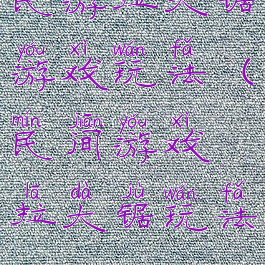 民游拉大锯
yóu xì wán fǎ
游戏玩法(
mín jiān yóu xì
民间游戏
lā dà jù wán fǎ
拉大锯玩法